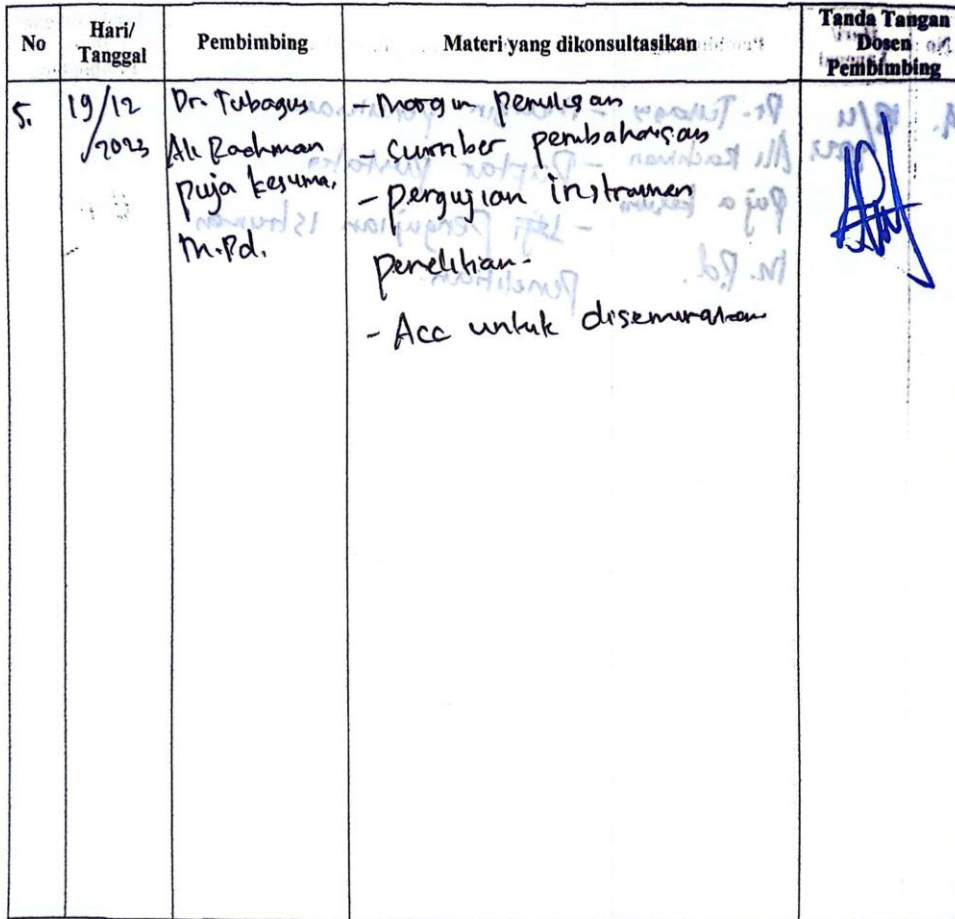 No
Hari/
Tanggal
Pembimbing
Materi yang dikonsultasikan
Tanda Tangan
Dosen
Pembimbing
5.
19/12
/2023
Dr. Tubagus
Ali Rachman
puja kesuma,
M.Pd.
- Margin penulisan
- Sumber pembahasan
- pengujian instrumen
penelitian.
- Acc untuk diseminarkan